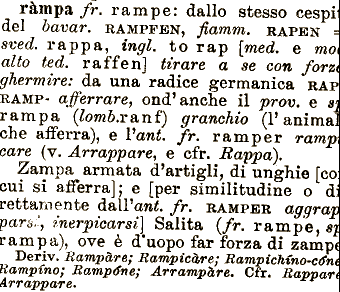 ràmpa fr. rampe: dallo stesso cespi
del bavar. RAMPFEN, fiamm. RAPEN =
sved. rappa, ingl. to rap [med. e mo
alto ted. raffen] tirare a se con forz
ghermire: da una radice germanica RAP
RAMP- afferrare, ond'anche il prov. e sp
rampa (lomb. ranf) granchio (l'animal
che afferra), e l'ant. fr. ramper ramp
care (v. Arrappare, e cfr. Rappa).
Zampa armata d'artigli, di unghie [co
cui si afferra]; e [per similitudine o di
rettamente dall'ant. fr. RAMPER aggrap
pars., inerpicarsi] Salita (fr. rampe, sp
rampa), ove è d'uopo far forza di zampe
Deriv. Rampàre; Rampicàre; Rampichíno-cóne
Rampíno; Rampóne; Arrampàre. Cfr. Rappare
Arrappare.